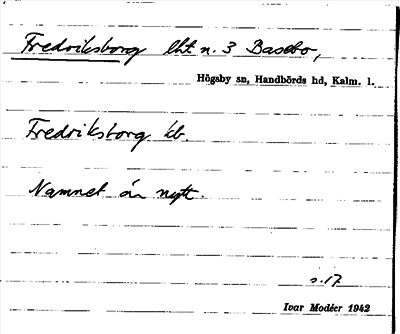 Fredriksborg lht n. 3 Basebo,
Högsby sn, Handbörds hd, Kalm. l.
Fredriksborg kb.
Namnet är nytt.
s. 17
Ivar Modéer 1942